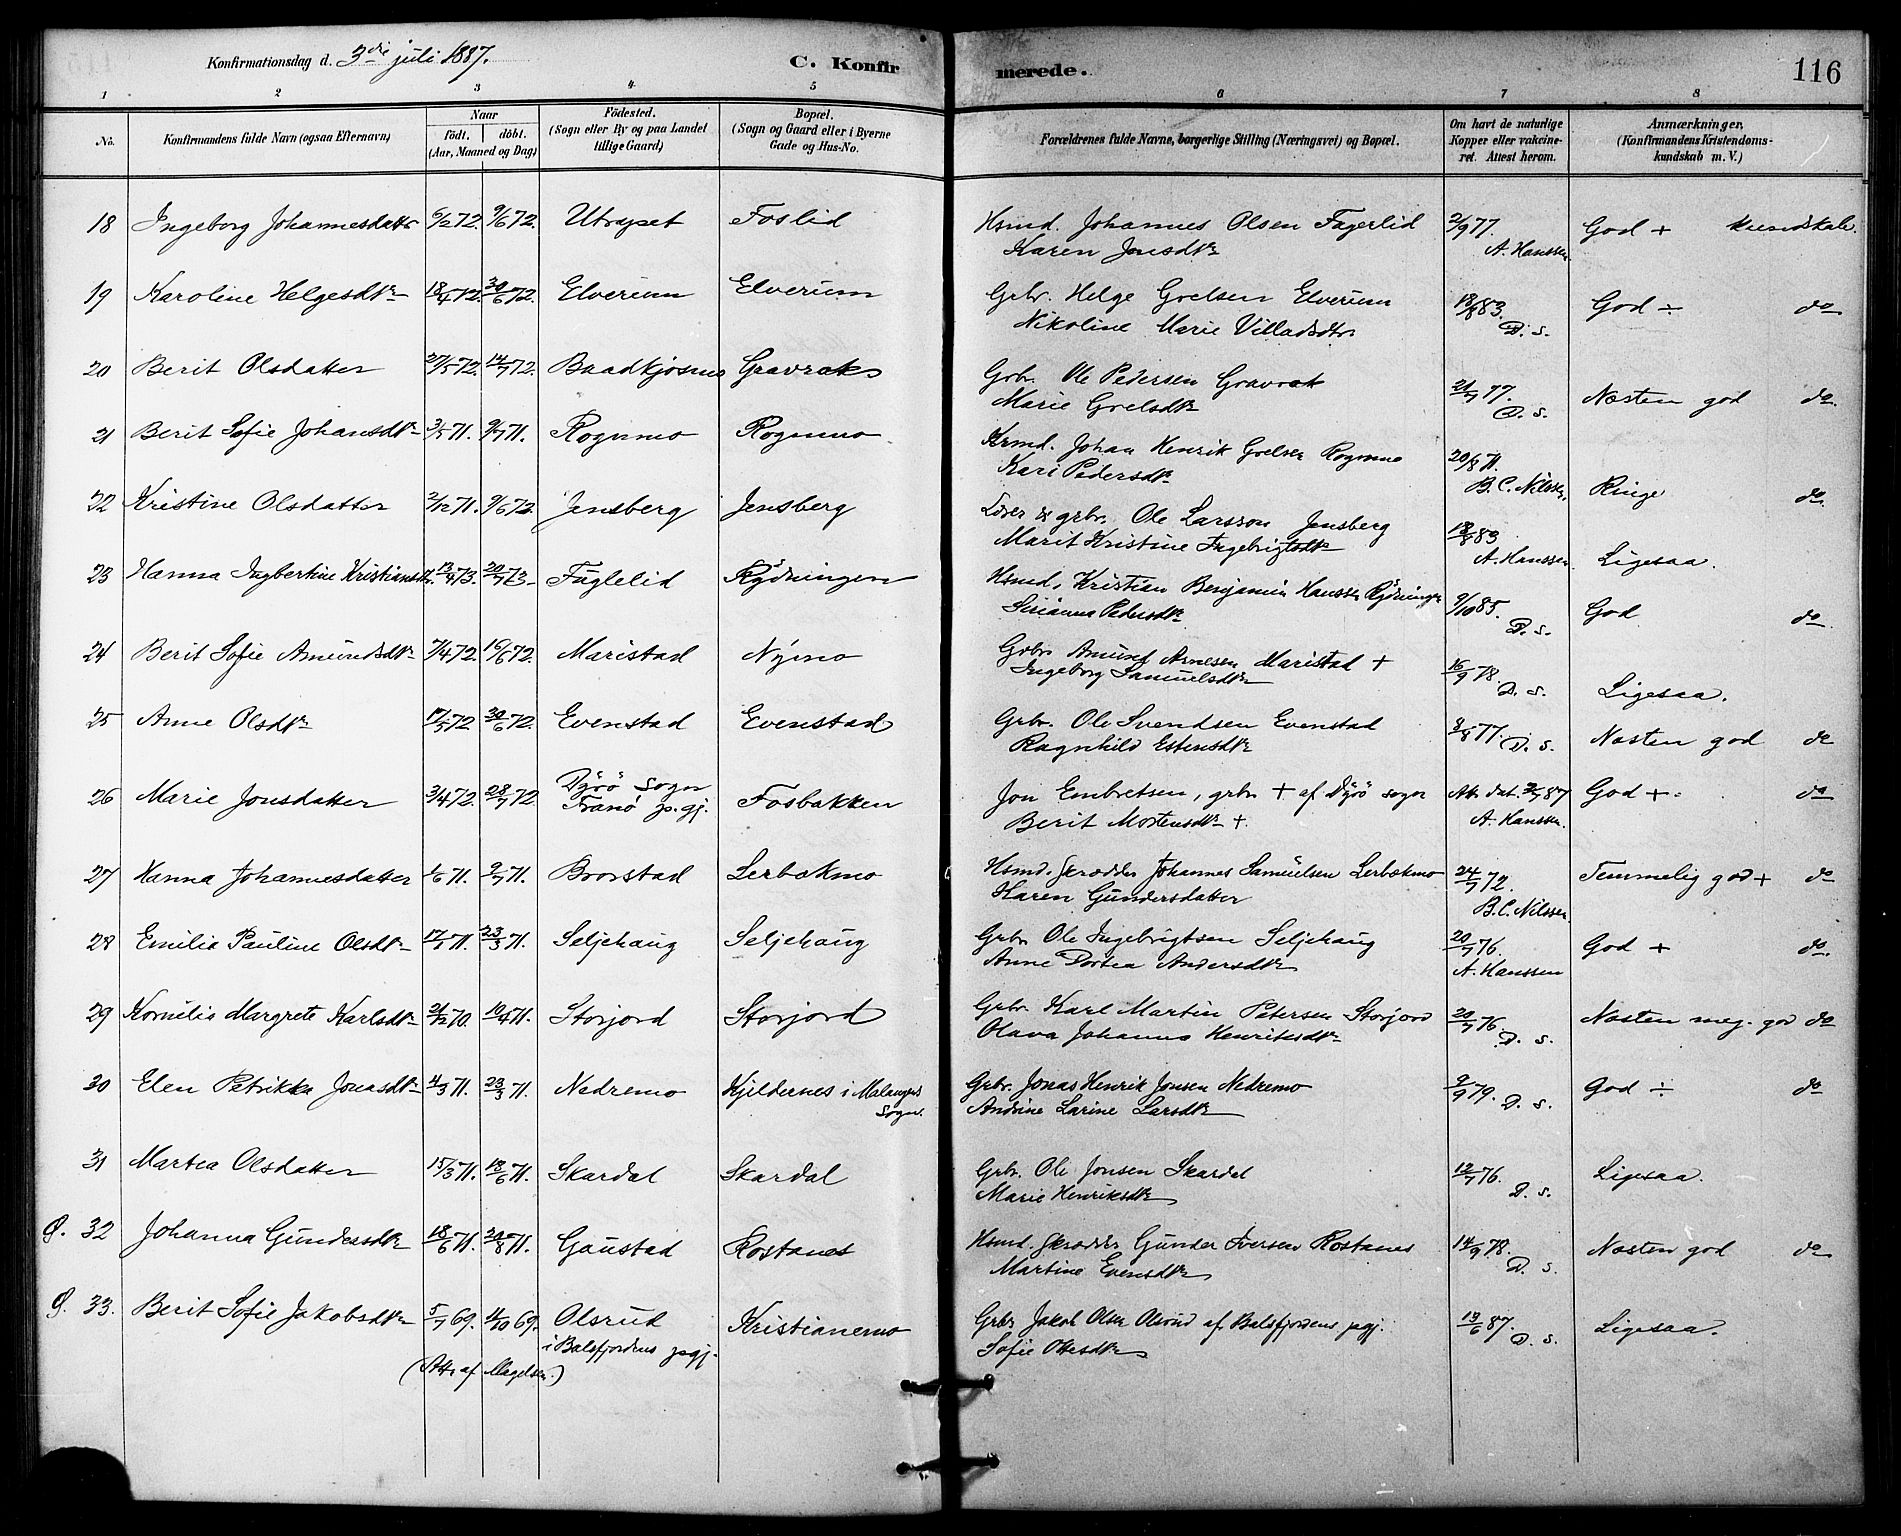 Konfirmationsdag d. 3die juli 1887.
C. Konfirmerede.
116
1 2 3 4 5 6 7 8
No. Konfirmandens fulde Navn (ogsaa Efternavn) Naar födt. döbt. (Aar, Maaned og Dag) Födested. (Sogn eller By og paa Landet tillige Gaard) Bopæl. (Sogn og Gaard eller i Byerne Gade og Hus-No. Forældrenes fulde Navne, borgerlige Stilling (Næringsvei) og Bopæl. Om havt de naturlige Kopper eller vakcineret. Attest herom. Anmærkninger, (Konfirmandens Kristendomskundskab m. V.)
18 Ingeborg Johannesdatter 6/2 72. 9/6 72. Utrapet Foslid Hsmd. Johannes Olsen Fagerlid 2/9 77. God + kundskab.
Karen Jonsdtr A. Hanssen
19 Karoline Helgesdtr 18/4 72. 30/6 72. Elverum Elverum Grbr. Helge Grelsen Elverum 18/8 83. God ÷ do
Nikoline Marie Villadsdtr. D. s.
20 Berit Olsdatter 27/5 72. 14/7 72. Baadkjosnes Gravrak Grbr. Ole Pedersen Gravrok 21/7 77. Næsten god do
Marie Grelsdtr D. s.
21 Berit Sofie Johansdtr 3/5 71. 9/7 71. Rognmo Rognmo Krmd. Johan Henrik Grelsen Rognmo 20/8 71.
Kari Pedersdtr B. C. Nilssen. Ringe do
22 Kristine Olsdatter 2/12 71. 9/6 72. Jensberg Jensberg Lærer & grbr. Ole Larsson Jensberg 18/8 83
Marit Kristine Ingebrigtsdtr A. Hanssen Ligesaa.
23 Hanna Ingbertine Kristiansdtr. 13/4 73. 20/7 73 Fuglelid Rydningen Hsmd. Kristian Benjamin Hanssen Rydningen 9/10 85. God do
Sirianna Pedersdtr D. s.
24 Berit Sofie Amundsdtr 7/4 72. 16/6 72. Maristad Nymo Grbr Amund Arnesen Maristad + 16/9 78.
Ingeborg Samuelsdtr D. s. Ligesaa.
25 Anne Olsdtr 17/5 72 30/6 72. Evenstad Evenstad Grbr. Ole Svendsen Evenstad 8/8 77. D. s. Næsten god do
Ragnhild Estensdtr
26 Marie Jonsdatter 3/4 72. 28/7 72. Dyrö Sogn Tranö p.gj. Fosbakken Jon Embretsen, grbr + af Dyrö sogn Att. dat. 2/7 87 God +. do
Berit Mortensdtr +. A. Hanssen.
27 Hanna Johannesdatter 1/6 71. 9/7 71. Brorstad Lerbakmo Hsmd. skrædder Johannes Samuelsen Lerbakmo 24/7 72. Temmelig god + do
Karen Gundersdatter B. C. Nilssen
28 Emilie Pauline Olsdtr 17/1 71. 23/3 71. Seljehaug Seljehaug Grbr Ole Ingebrigtsen Seljehaug 20/7 76. God + do.
Anne Dortea Andersdtr A. Hanssen
29 Kornelia Margrete Karlsdtr 21/12 70. 10/4 71. Storjord Storjord Grbr. Karl Martin Petersen Storjord 20/7 76. Næsten meg. god do
Olava Johanna Henriksdtr D. s.
30 Elen Petrikke Jonasdtr 4/3 71. 23/3 71. Nedremo Kjeldernes i Malangens Sogn. Grbr. Jonas Henrik Jonsen Nedremo 9/9 79. D. s. God ÷ do
Andrine Larine Larsdtr
31 Martea Olsdatter 15/3 71. 18/6 71. Skardal Skardal Grbr. Ole Jonsen Skardal 12/7 76. Ligesaa.
Marie Henriksdtr D. s.
O. 32 Johanna Gundersdtr 18/6 71. 20/8 71. Gaustad Rostanes Hsmd. skrædder Gunder Iversen Rostanes 14/9 78. Næsten god do
Martine Evensdtr D. s.
O. 33. Berit Sofie Jakobsdtr 5/7 69. 4/10 69. Olsrud i Balsfjordens prgj. Kristianemo Grbr Jakob Olsen Olsrud af Balsfjordens prgj. 13/6 87. D. s. Ligesaa.
Sofie Ottesdtr
(Att. af Magelsen.)